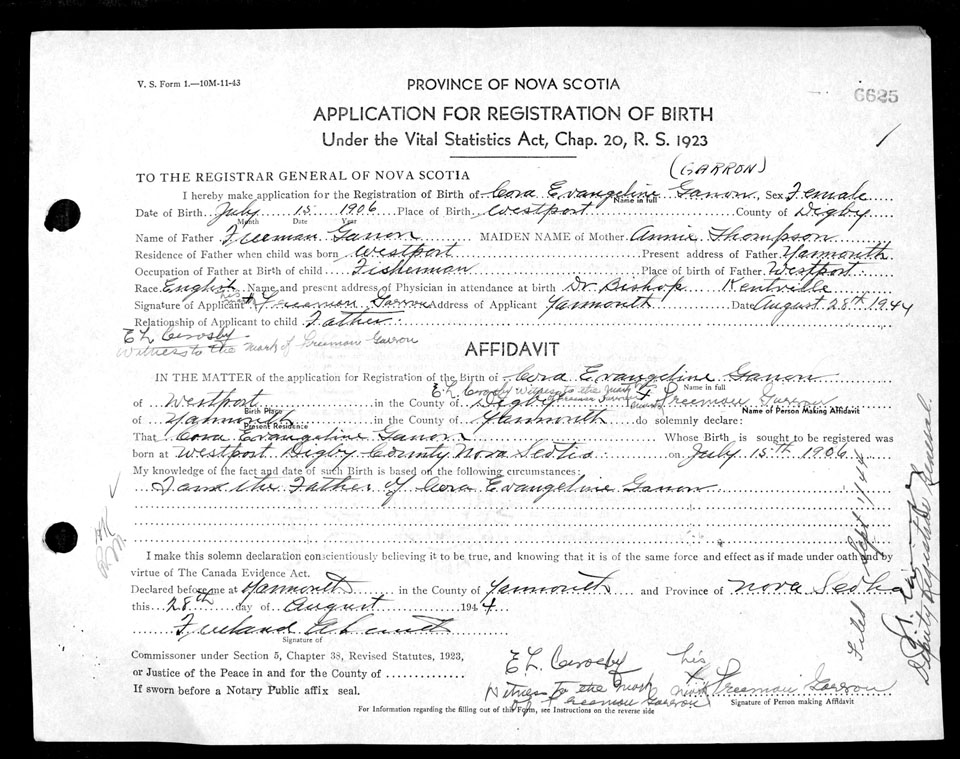 V. S. Form 1.—10M-11-43
PROVINCE OF NOVA SCOTIA
6625
APPLICATION FOR REGISTRATION OF BIRTH
Under the Vital Statistics Act, Chap. 20, R. S. 1923
(GARRON)
TO THE REGISTRAR GENERAL OF NOVA SCOTIA
I hereby make application for the Registration of Birth of Cora Evangeline Garron Sex Female
Name in full
Date of Birth July 15 1906 Place of Birth Westport County of Digby
Month Date Year
Name of Father Freeman Garron MAIDEN NAME of Mother Annie Thompson
Residence of Father when child was born Westport Present address of Father Yarmouth
Occupation of Father at Birth of child Fisherman Place of birth of Father Westport
Race English Name and present address of Physician in attendance at birth Dr Bishop Kentville
Signature of Applicant his X Freeman Garron Address of Applicant Yarmouth Date August 28th 1944
Relationship of Applicant to child Father
E L Crosby
Witness to the mark of Freeman Garron
AFFIDAVIT
IN THE MATTER of the application for Registration of the Birth of Cora Evangeline Garron
Name in full
E L Crosby Witness to the mark of Freeman Garron
of Westport in the County of Digby I Freeman Garron
Birth Place Name of Person Making Affidavit
of Yarmouth in the County of Yarmouth do solemnly declare:
Present Residence
That Cora Evangeline Garron Whose Birth is sought to be registered was
born at Westport Digby County Nova Scotia on July 15th 1906
My knowledge of the fact and date of such Birth is based on the following circumstances:
I am the Father of Cora Evangeline Garron
I make this solemn declaration conscientiously believing it to be true, and knowing that it is of the same force and effect as if made under oath and by
virtue of The Canada Evidence Act.
Declared before me at Yarmouth in the County of Yarmouth and Province of Nova Scotia
this 28th day of August 1944
Signature of
Commissioner under Section 5, Chapter 38, Revised Statutes, 1923,
or Justice of the Peace in and for the County of
If sworn before a Notary Public affix seal.
E L Crosby
Witness to the mark
of Freeman Garron
his X mark Freeman Garron
Signature of Person making Affidavit
For Information regarding the filling out of this Form, see Instructions on the reverse side
Filed Sept 1/1944
Deputy Registrar General